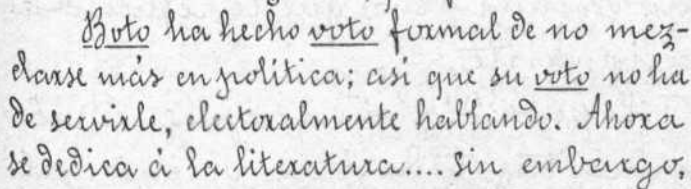 Boto ha hecho voto formal de no mez-
clarse más en política; así que su voto no ha
de servirle, electoralmente hablando. Ahora
se dedica á la literatura.... Sin embargo,